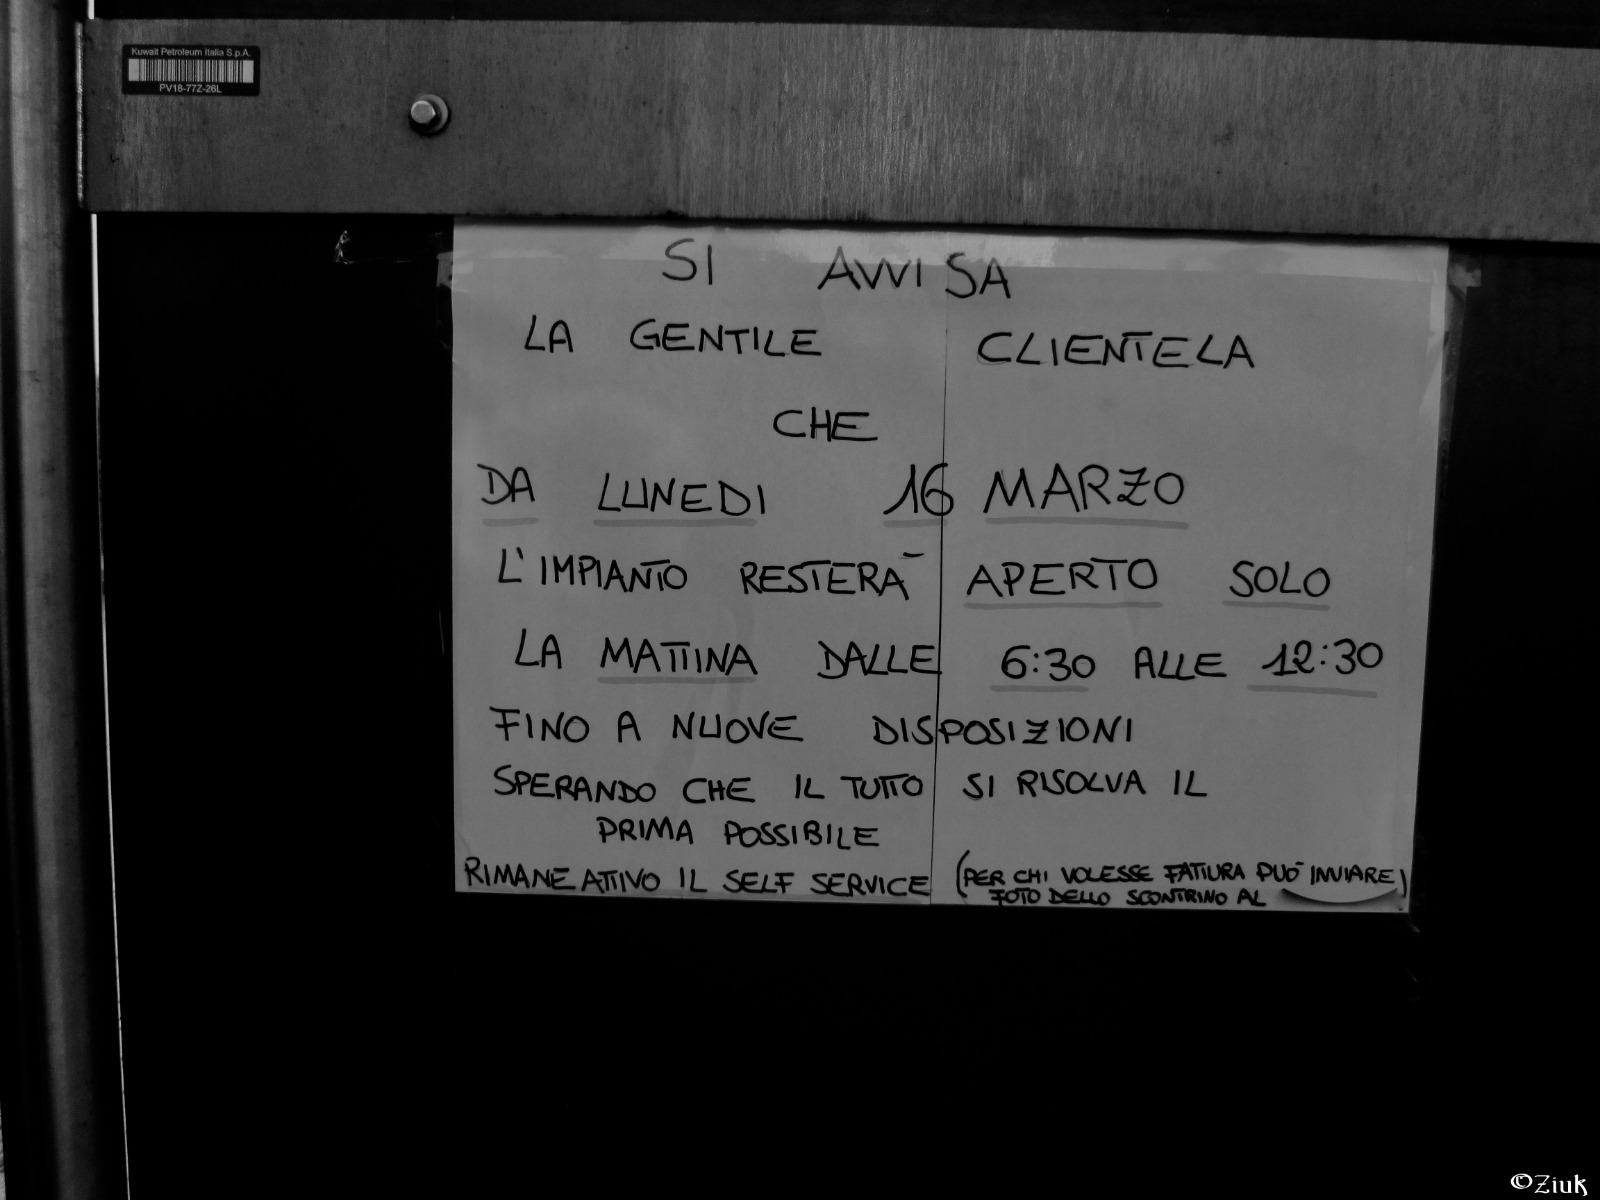 Kuwait Petroleum Italia S.p.A.
PV18-77Z-26L
SI AVVISA
LA GENTILE CLIENTELA
CHE
DA LUNEDI 16 MARZO
L'IMPIANTO RESTERÀ APERTO SOLO
LA MATTINA DALLE 6:30 ALLE 12:30
FINO A NUOVE DISPOSIZIONI
SPERANDO CHE IL TUTTO SI RISOLVA IL
PRIMA POSSIBILE
RIMANE ATTIVO IL SELF SERVICE (PER CHI VOLESSE FATTURA PUÒ INVIARE)
FOTO DELLO SCONTRINO AL
©Ziuk